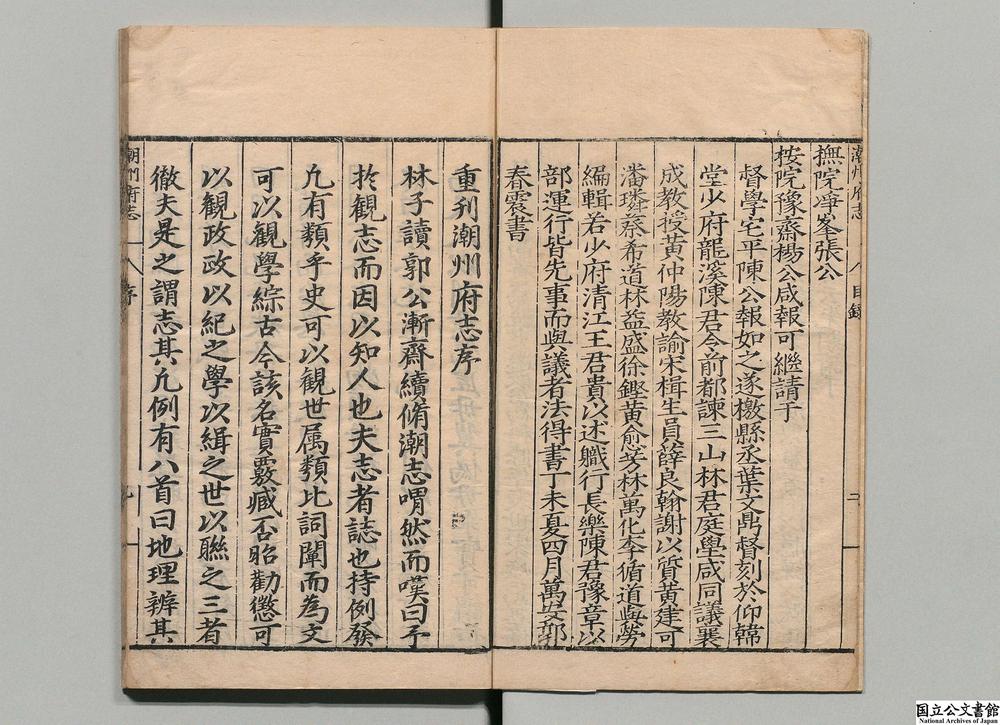 潮州府志 八 目錄 二
撫院淨峯張公
按院豫齋楊公咸報可繼請于
督學宅平陳公報如之遂檄縣丞葉文鼎督刻於仰韓
堂少府龍溪陳君今前都諫三山林君庭學咸同議襄
成教授黃仲陽教諭宋楫生員薛良翰謝以質黃建可
潘璘蔡希道林益盛徐鏗黃俞芳林萬化李循道與勞
編輯若少府清江王君貴以述職行長樂陳君豫章以
部運行皆先事而與議者法得書丁未夏四月萬安郭
春震書
重刊潮州府志序
林子讀郭公漸齋續脩潮志喟然而嘆曰予
扵觀志而因以知人也夫志者誌也持例發
凢有類乎史可以觀世属類比詞闡而為文
可以觀學綜古今該名實覈臧否昭勸懲可
以觀政政以紀之學以緝之世以聮之三者
徹夫是之謂志其凢例有八首曰地理辨其
潮州府志 八 序 一
国立公文書館
National Archives of Japan